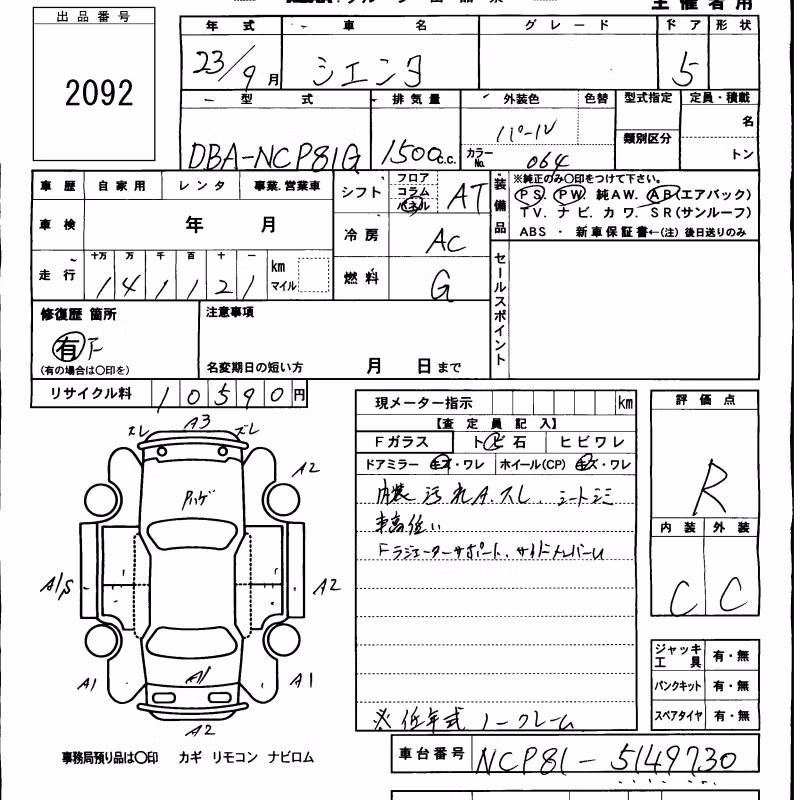 出品番号
2092
主催者用
年式 車名 グレード ドア 形状
23/9月 シエンタ 5
型式 排気量 外装色 色替 型式指定 定員・積載
類別区分 名
DBA-NCP81G 1500c.c. パール トン
カラーNo. 064
車歴 自家用 レンタ 事業.営業車
車検 年 月
走行 十万 万 千 百 十 一 km マイル
141121
シフト フロア コラム パネル AT
冷房 AC
燃料 G
装備品
※純正のみ○印をつけて下さい。
PS. PW. 純AW. AB(エアバック)
TV. ナビ. カワ. SR(サンルーフ)
ABS ・ 新車保証書←(注) 後日送りのみ
セールスポイント
修復歴 箇所 注意事項
有 F
(有の場合は○印を) 名変期日の短い方 月 日まで
リサイクル料 10590円
現メーター指示 km
【査定員記入】
Fガラス トビ石 ヒビワレ
ドアミラー キズ・ワレ ホイール(CP) キズ・ワレ
内装 汚れA.スレ. シートシミ
車高低い
Fラジエターサポート.サイドメンバーU
※低年式 ノークレーム
評価点
R
内装 外装
C C
A3
ズレ ズレ
A2
Pハゲ
A1S
A2
A1
A1
A1
A2
ジャッキ工具 有・無
パンクキット 有・無
スペアタイヤ 有・無
事務局預り品は○印 カギ リモコン ナビロム
車台番号 NCP81-5149730